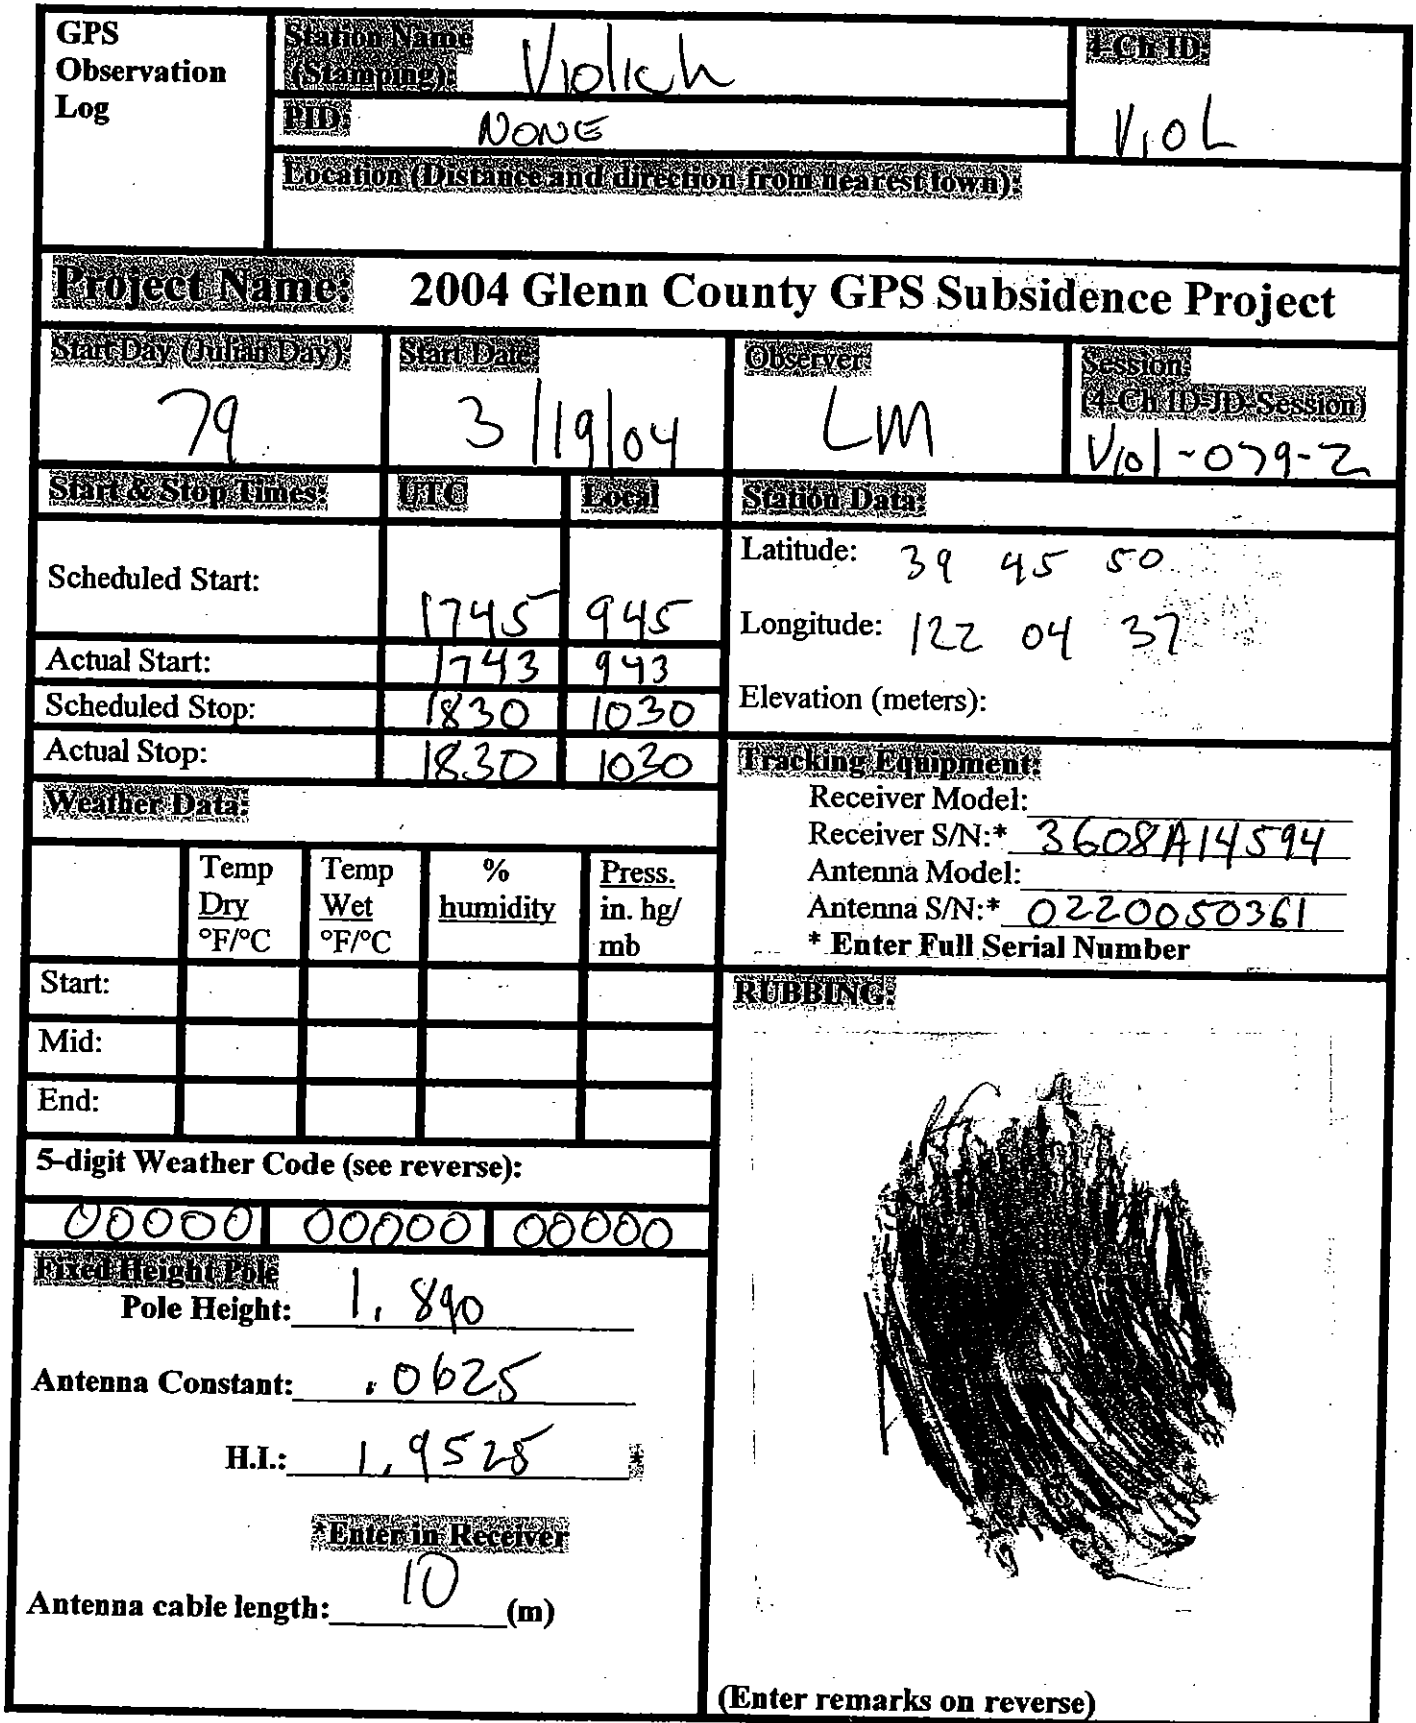 GPS
Observation
Log
Station Name
(Stamping): Violich
4-Ch ID:
VioL
PID: NONE
Location (Distance and direction from nearest town):
Project Name: 2004 Glenn County GPS Subsidence Project
Start Day (Julian Day):
79
Start Date:
3/19/04
Observer:
LM
Session:
(4-Ch ID-JD-Session)
Viol-079-2
Start & Stop Times: UTC Local
Scheduled Start: 1745 945
Actual Start: 1743 943
Scheduled Stop: 1830 1030
Actual Stop: 1830 1030
Station Data:
Latitude: 39 45 50
Longitude: 122 04 37
Elevation (meters):
Tracking Equipment:
Receiver Model:
Receiver S/N:* 3608A14594
Antenna Model:
Antenna S/N:* 0220050361
* Enter Full Serial Number
Weather Data:
Temp
Dry
°F/°C
Temp
Wet
°F/°C
%
humidity
Press.
in. hg/
mb
Start:
Mid:
End:
5-digit Weather Code (see reverse):
00000 00000 00000
Fixed Height Pole
Pole Height: 1.890
Antenna Constant: .0625
H.I.: 1.9525 *
*Enter in Receiver
Antenna cable length: 10 (m)
RUBBING:
(Enter remarks on reverse)